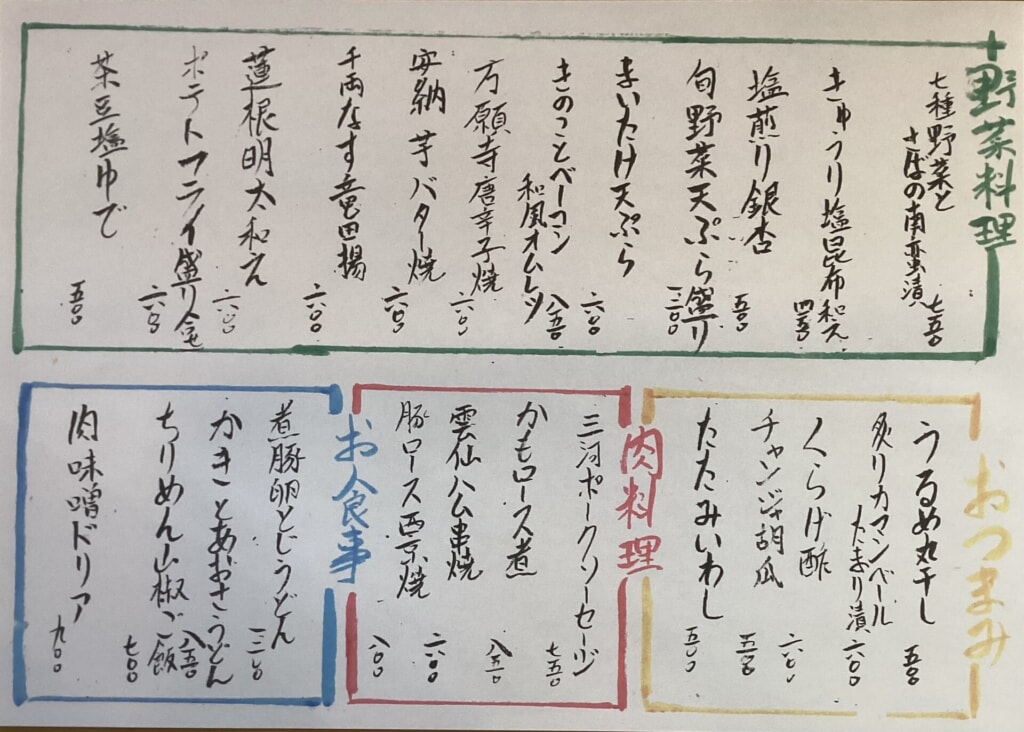 野菜料理
七種野菜と
さばの南蛮漬
七五〇
きゅうり塩昆布和え
四五〇
塩煎り銀杏
五五〇
旬野菜天ぷら盛り
一三〇〇
まいたけ天ぷら
六〇〇
きのことベーコン
和風オムレツ
八五〇
万願寺唐辛子焼
六〇〇
安納芋バター焼
六〇〇
千両なす竜田揚
六〇〇
蓮根明太和え
六〇〇
ポテトフライ盛り合せ
六〇〇
茶豆塩ゆで
五〇〇
おつまみ
うるめ丸干し
五五〇
炙りカマンベール
たまり漬
六〇〇
くらげ酢
六〇〇
チャンジャ胡瓜
五五〇
たたみいわし
五〇〇
肉料理
三河ポークソーセージ
七五〇
かもロース煮
八五〇
雲仙ハム串焼
六〇〇
豚ロース西京焼
八〇〇
お食事
煮豚卵とじうどん
かきとあおさうどん
八五〇
ちりめん山椒ご飯
七〇〇
肉味噌ドリア
九〇〇